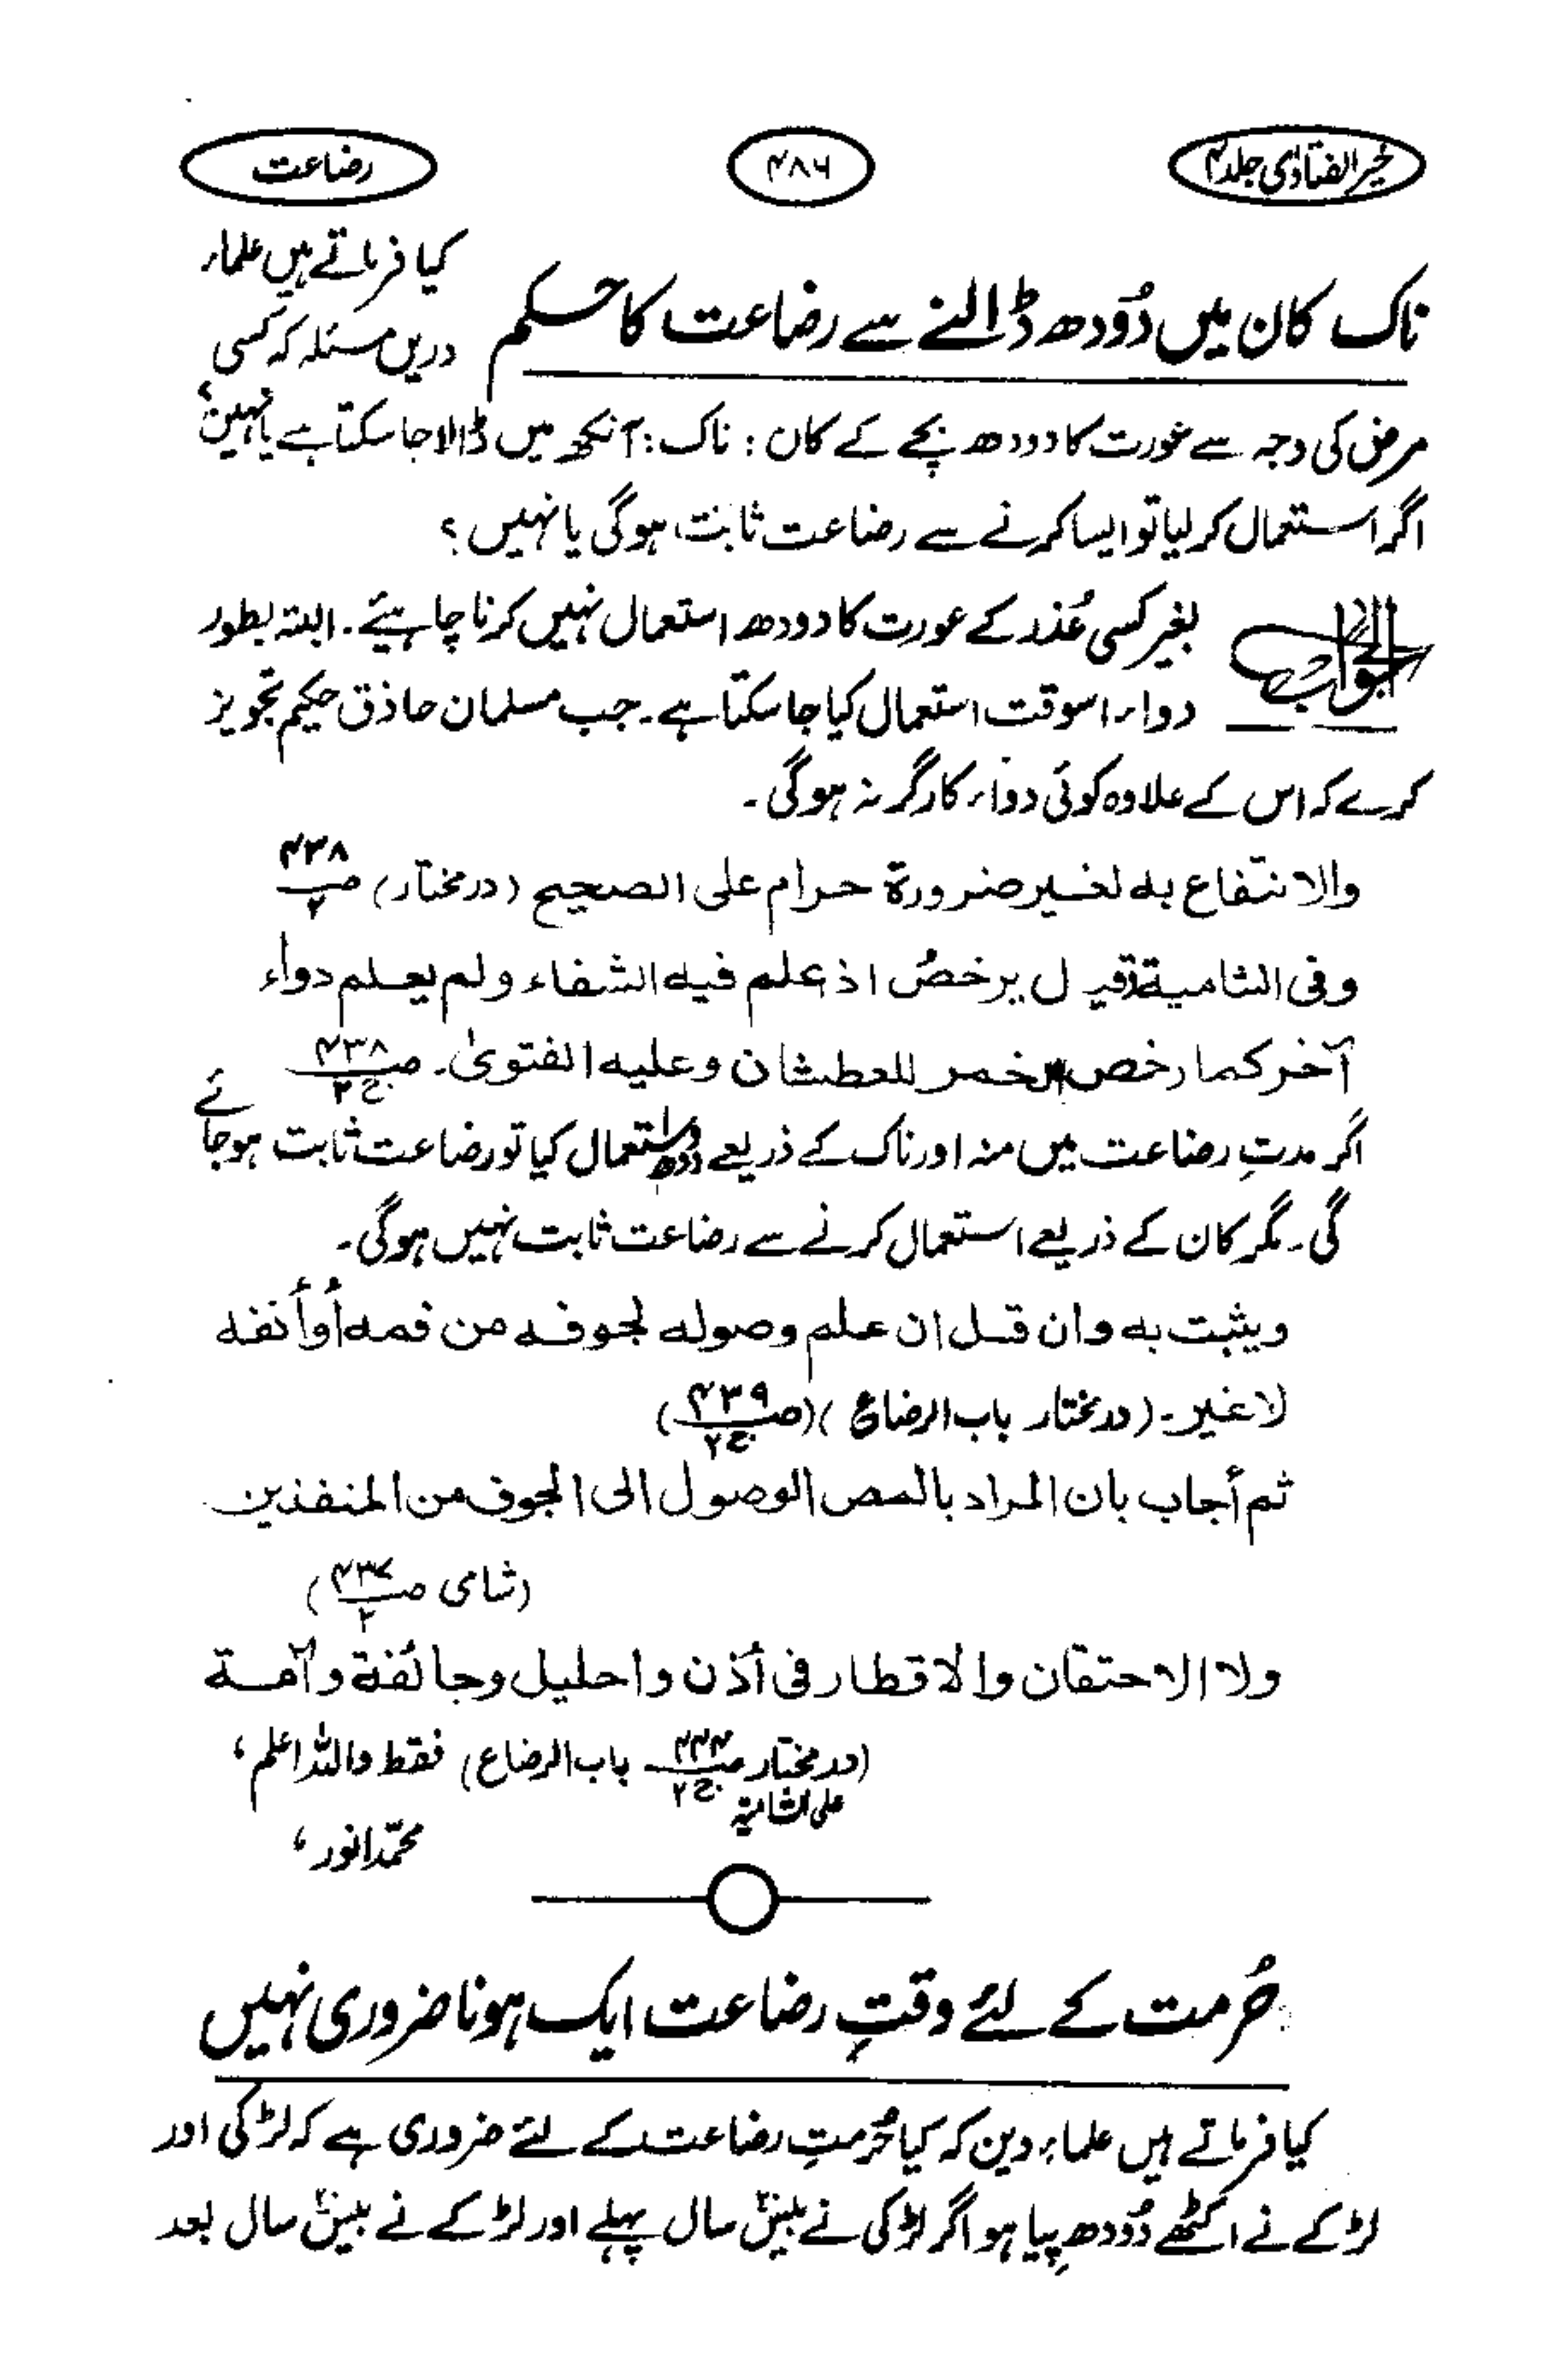 خیر الفتاوٰی جلد ۴
۴۸۶
رضاعت
ناک کان میں دُودھ ڈالنے سے رضاعت کا حکم
کیا فرماتے ہیں علماء
دریں مسئلہ کہ کسی
مرض کی وجہ سے عورت کا دودھ بچے کے کان : ناک : آنکھ میں ڈالا جا سکتا ہے یا نہیں،
اگر استعمال کر لیا تو ایسا کرنے سے رضاعت ثابت ہوگی یا نہیں ؟
الجواب
بغیر کسی عُذر کے عورت کا دودھ استعمال نہیں کرنا چاہیئے۔ البتہ بطور
دواء اسوقت استعمال کیا جا سکتا ہے۔ جب مسلمان حاذق حکیم تجویز
کرے کہ اس کے علاوہ کوئی دواء کارگر نہ ہوگی۔
والانتفاع به لغیر ضرورة حرام علی الصحیح (درمختار) ص۴۳۸
وفی الشامیة قیل یرخص اذ علم فیه الشفاء ولم یعلم دواء
آخر کما رخص الخمر للعطشان وعلیه الفتویٰ۔ ص۴۳۸ ج۲
اگر مدتِ رضاعت میں منہ اور ناک کے ذریعے دودھ استعمال کیا تو رضاعت ثابت ہو جائے
گی۔ مگر کان کے ذریعے استعمال کرنے سے رضاعت ثابت نہیں ہوگی۔
ویثبت به وان قل ان علم وصوله لجوفه من فمه أو أنفه
لا غیر۔ (درمختار باب الرضاع) (ص۴۳۹ ج۲)
ثم أجاب بان المراد بالمص الوصول الی الجوف من المنفذین
(شامی ص۴۳۷ ۲)
ولا الاحتقان والاقطار فی أذن واحلیل وجائفة وآمة
(درمختار علی الشامیة ص۴۴۴ ج۲ باب الرضاع) فقط واللہ اعلم،
محمّد انور،
حُرمت کے لئے وقتِ رضاعت ایک ہونا ضروری نہیں
کیا فرماتے ہیں علماءِ دین کہ کیا حُرمتِ رضاعت کے لئے ضروری ہے کہ لڑکی اور
لڑکے نے اکٹھے دُودھ پیا ہو اگر لڑکی نے بیس سال پہلے اور لڑکے نے بیس سال بعد